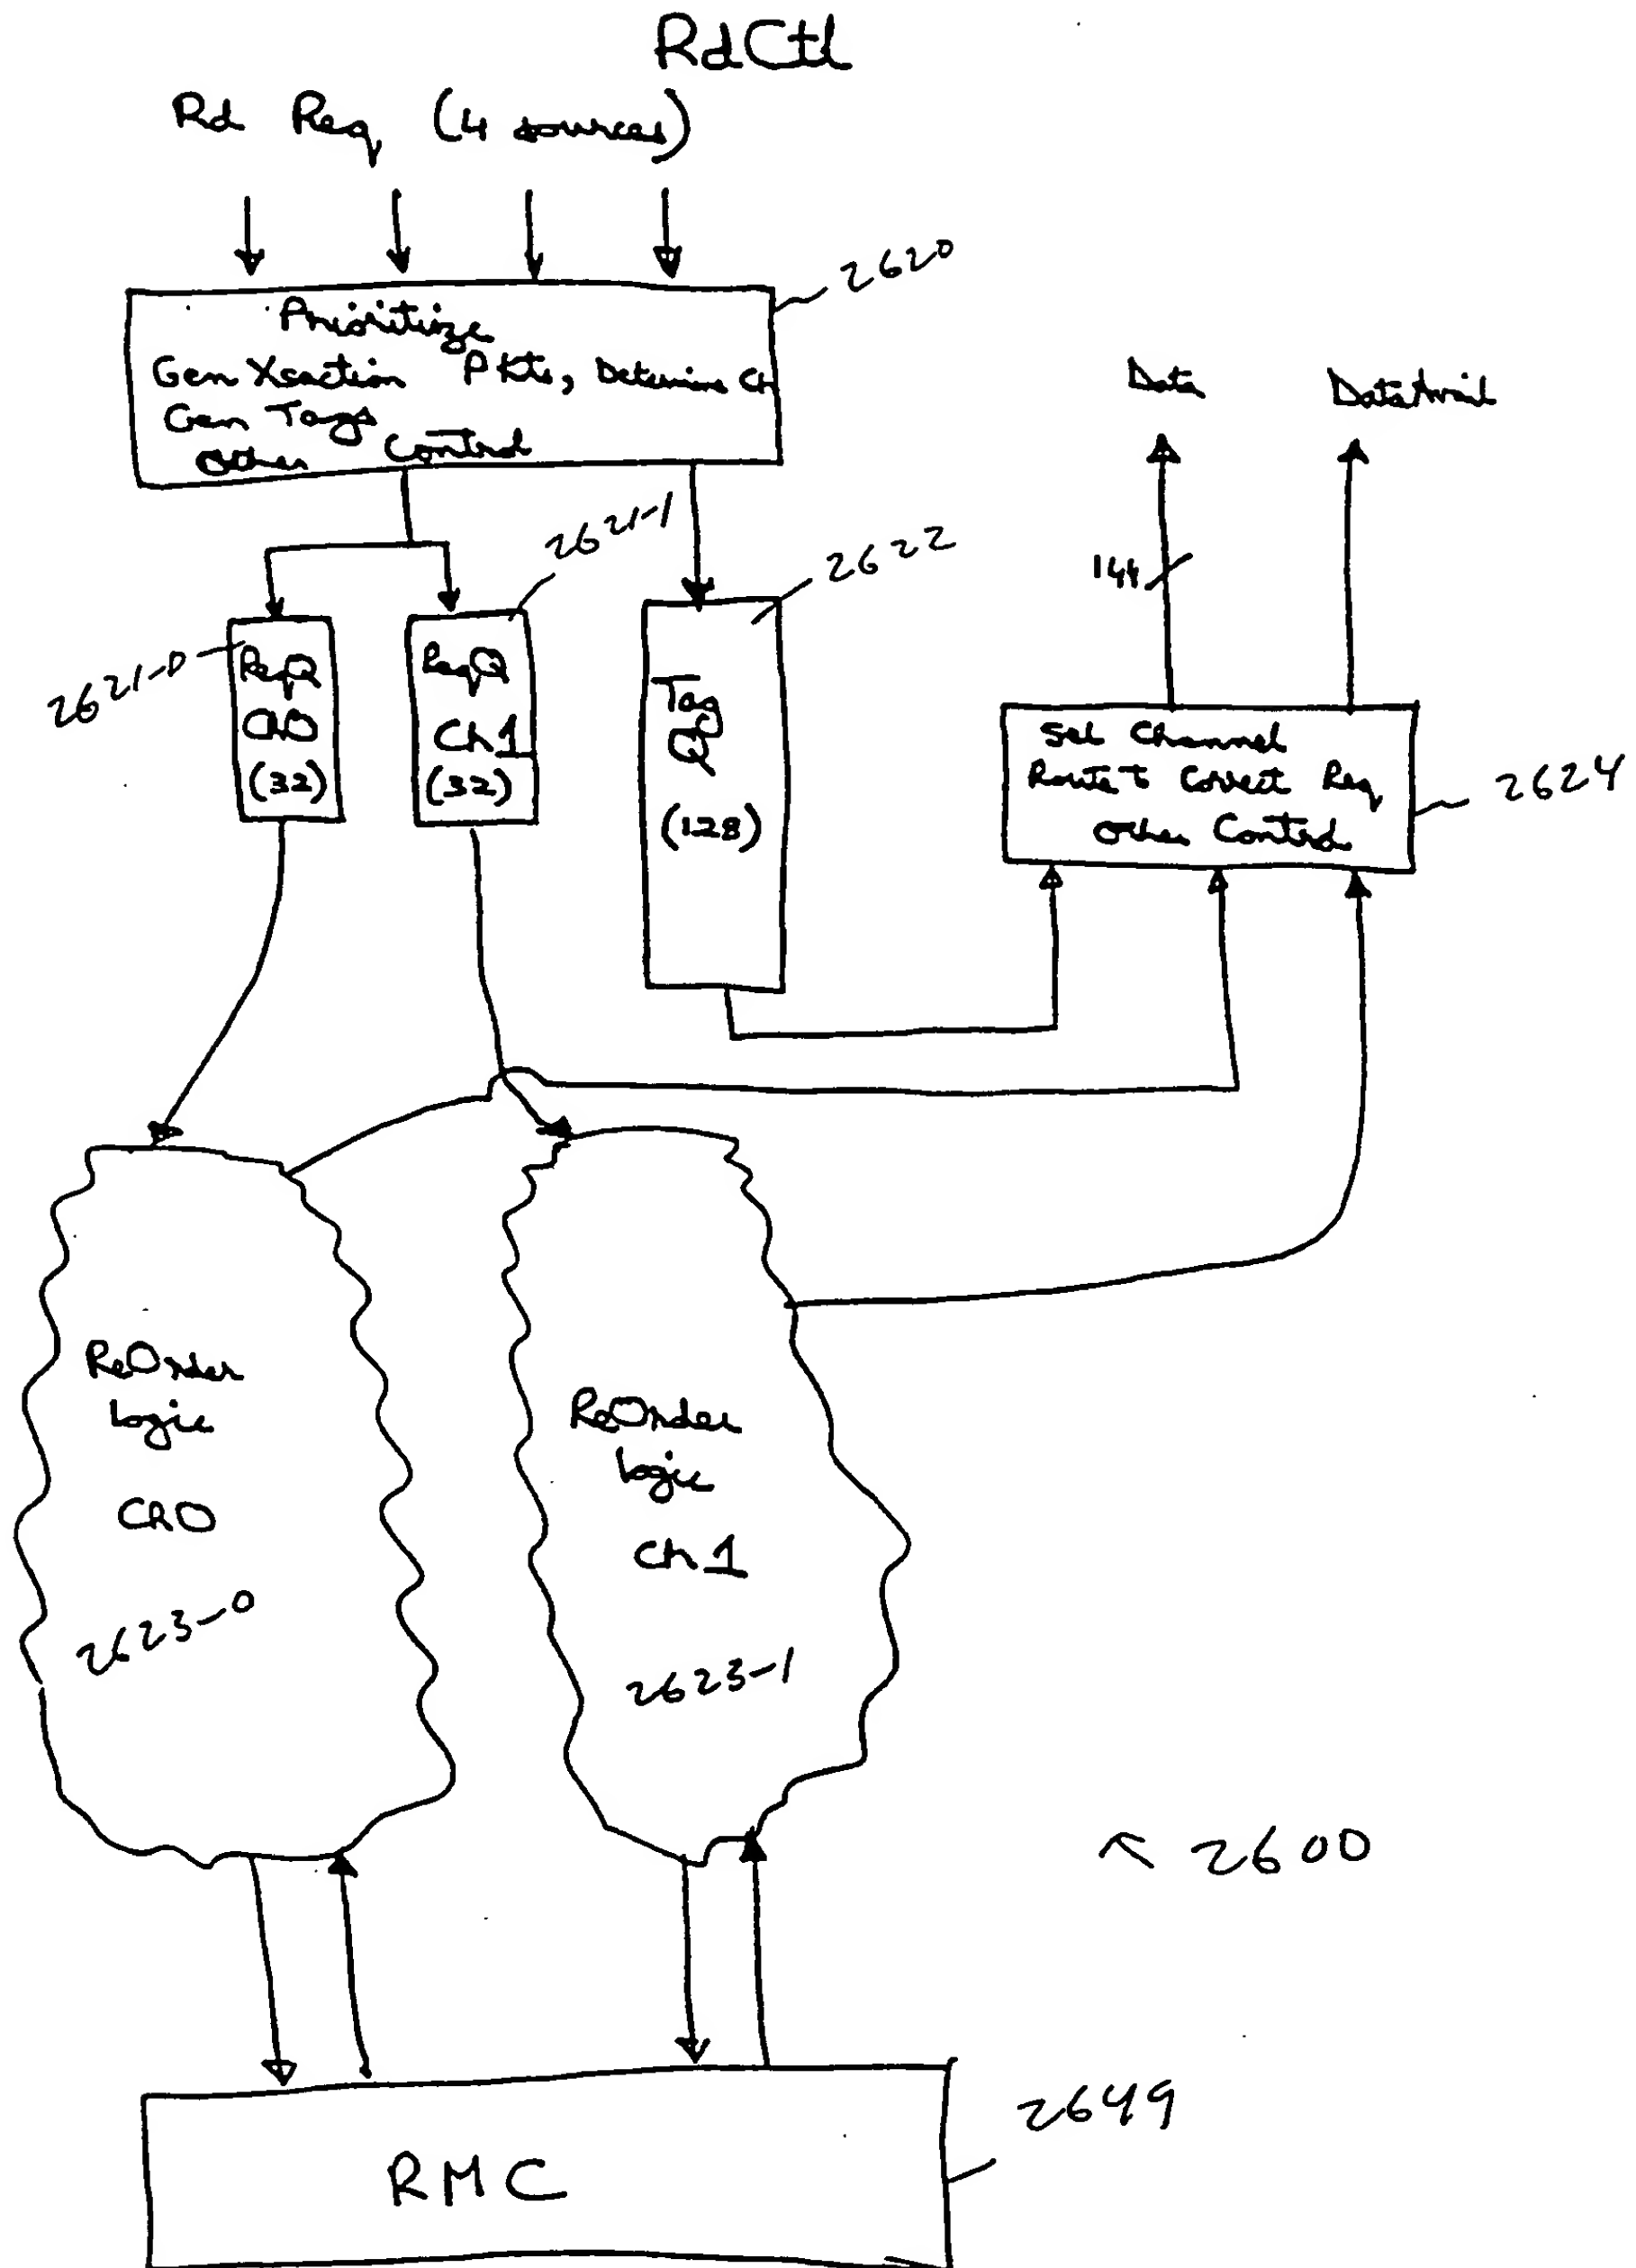 RdCtl
Rd Req (4 sources)
2620
Prioritize
Gen Xsaction Pkts, Determine CH
Gen Tags
Other Control
Data
DataAvail
144
2621-0
ReqQ
Ch0
(32)
2621-1
ReqQ
Ch1
(32)
2622
Tag
Q
(128)
Sel Channel
Route to Correct Req
Other Control
2624
ReOrder
Logic
Ch0
2623-0
ReOrder
Logic
Ch1
2623-1
2600
RMC
2649